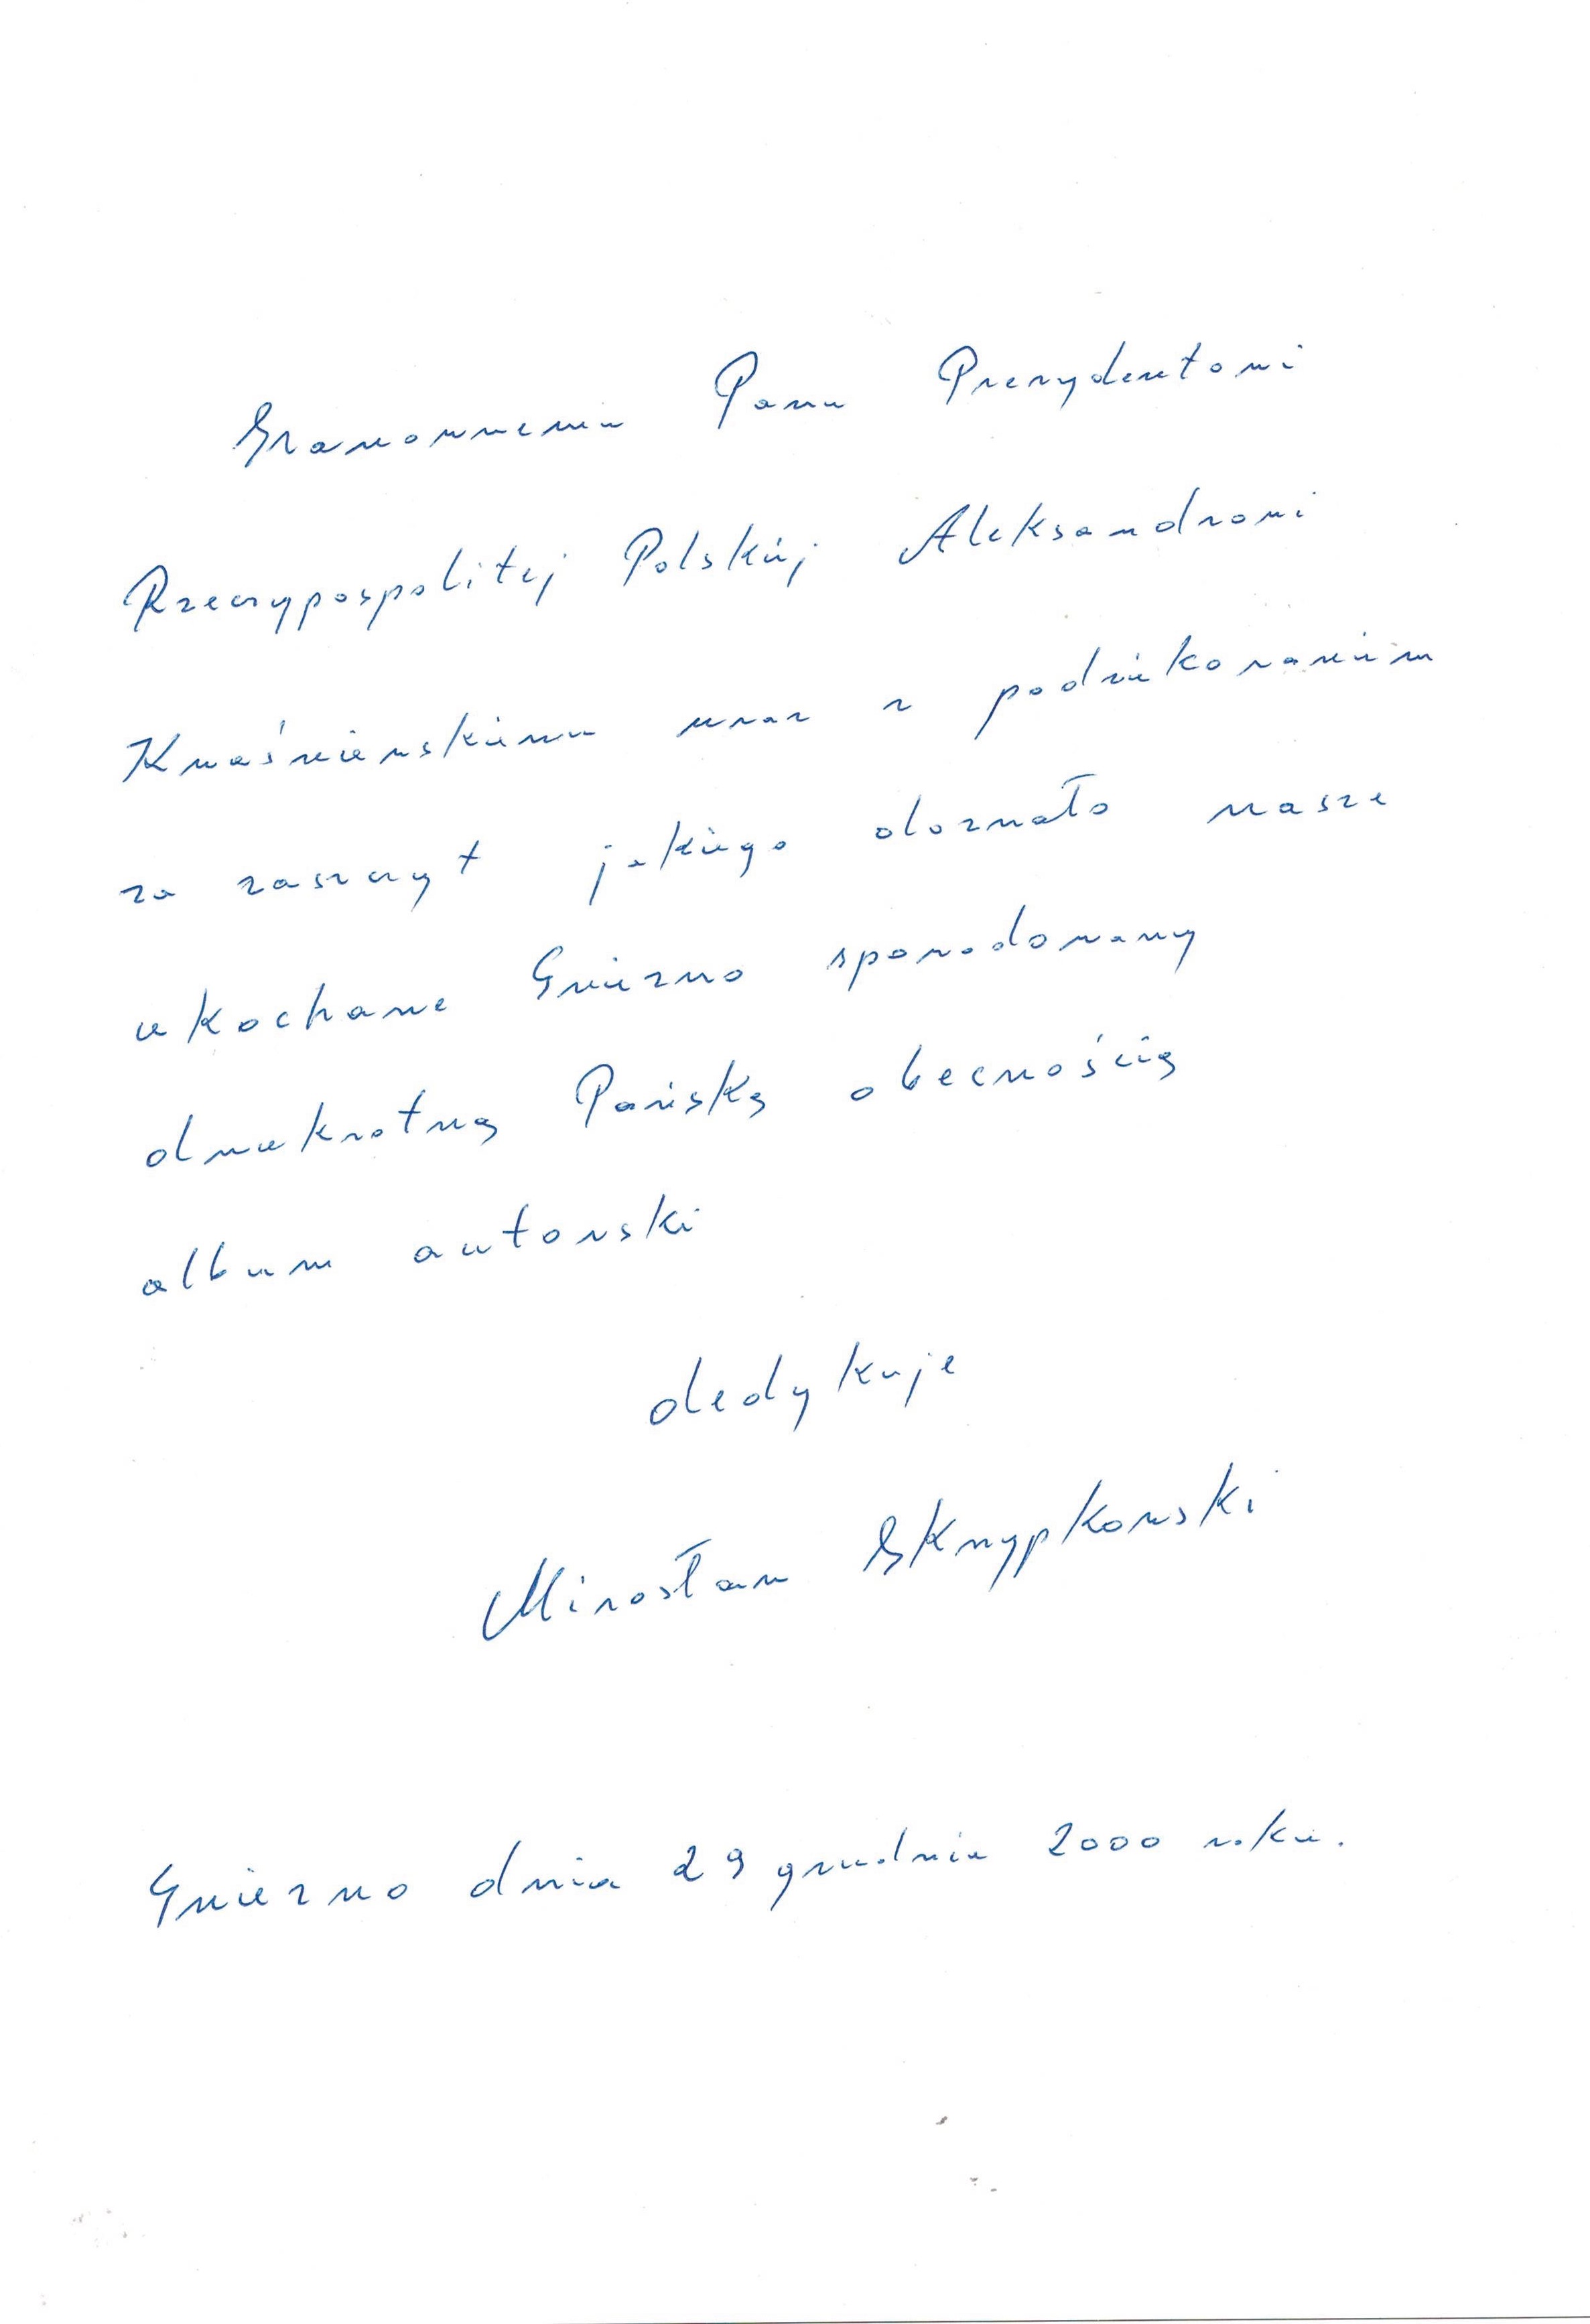 Szanownemu Panu Prezydentowi
Rzeczypospolitej Polskiej Aleksandrowi
Kwaśniewskiemu wraz z podziękowaniem
za zaszczyt jakiego doznało nasze
ukochane Gniezno spowodowany
dwukrotną Pańską obecnością
album autorski
dedykuje
Mirosław Skrzypkowski
Gniezno dnia 29 grudnia 2000 roku.